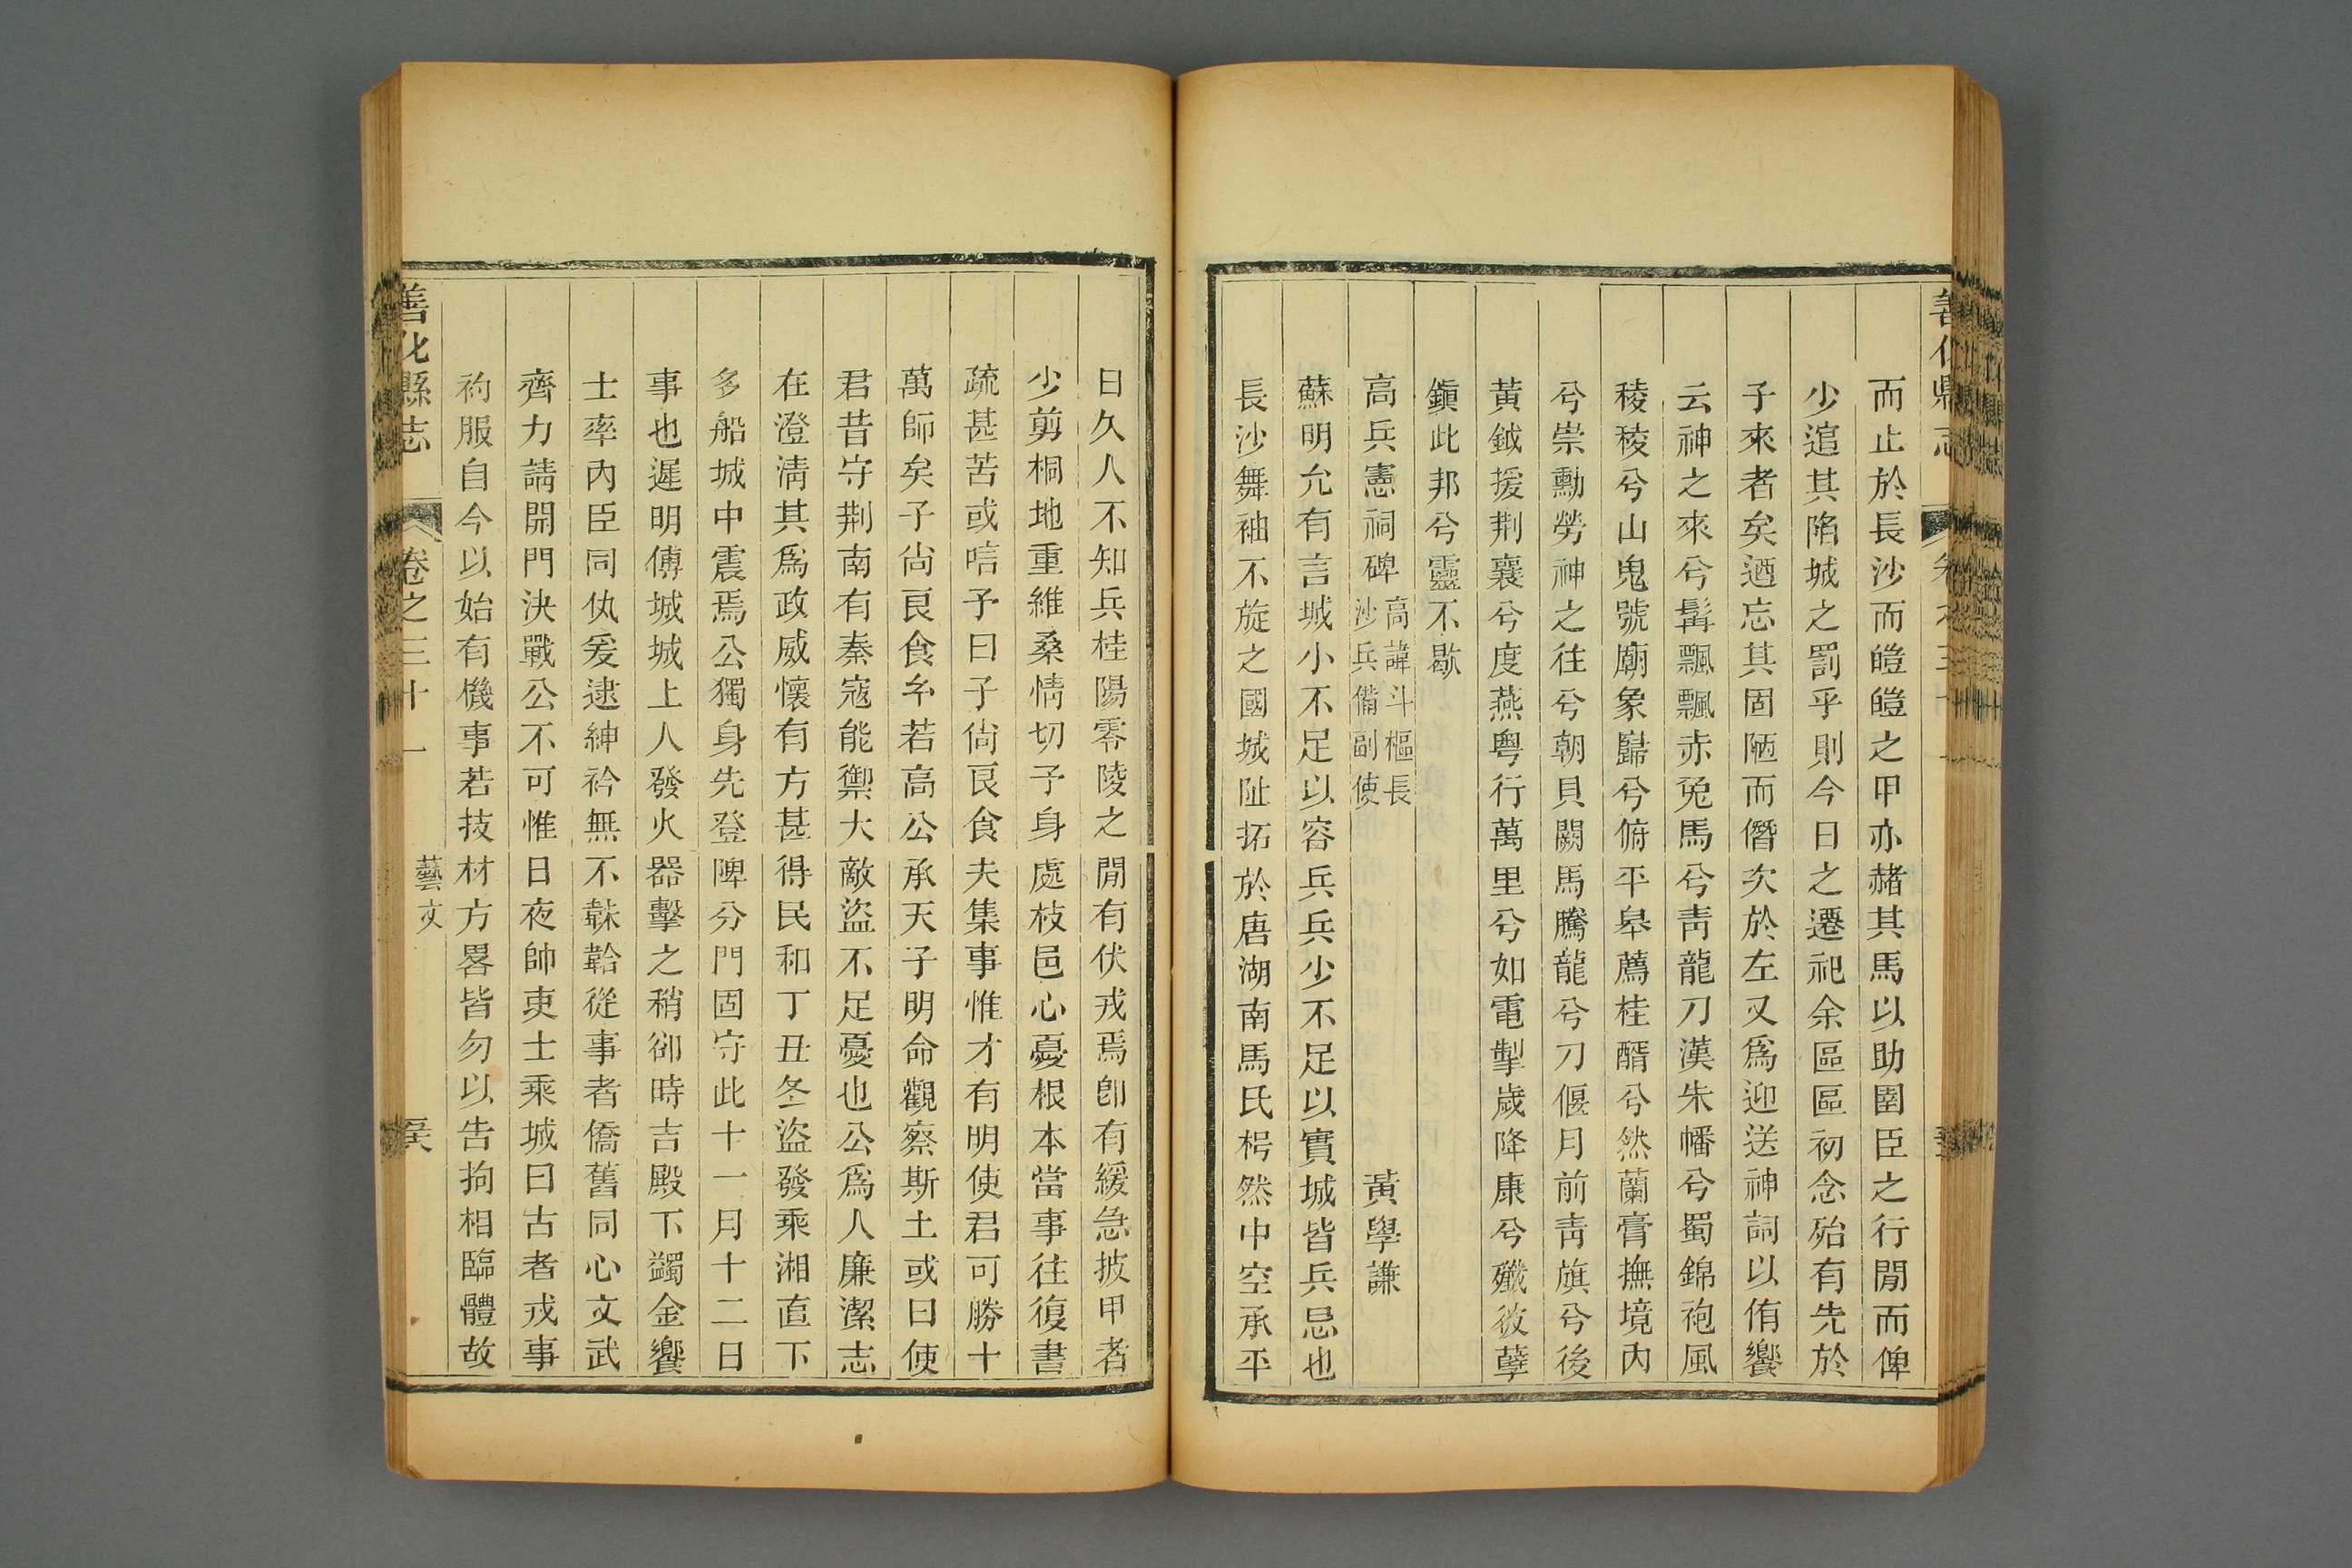 而止於長沙而皚皚之甲亦赭其馬以助圉臣之行閒而俾
少追其陷城之罰乎則今日之遷祀余區區初念殆有先於
子來者矣迺忘其固陋而僭次於左又爲迎送神詞以侑饗
云神之來兮髯飄飄赤兔馬兮靑龍刀漢朱幡兮蜀錦袍風
稜稜兮山鬼號廟象歸兮俯平皋薦桂醑兮然蘭膏撫境內
兮崇勳勞神之往兮朝貝闕馬騰龍兮刀偃月前靑旗兮後
黃鉞援荆襄兮度燕粤行萬里兮如電掣歲降康兮殲彼孽
鎭此邦兮靈不歇
高兵憲祠碑 高諱斗樞長沙兵備副使 黃學謙
蘇明允有言城小不足以容兵兵少不足以實城皆兵忌也
長沙舞袖不旋之國城阯拓於唐湖南馬氏枵然中空承平
日久人不知兵桂陽零陵之閒有伏戎焉卽有緩急披甲者
少剪桐地重維桑情切予身處枝邑心憂根本當事往復書
疏甚苦或唁予曰子尙良食夫集事惟才有明使君可勝十
萬師矣子尙良食乎若高公承天子明命觀察斯土或曰使
君昔守荆南有秦寇能禦大敵盜不足憂也公爲人廉潔志
在澄淸其爲政威懷有方甚得民和丁丑冬盜發乘湘直下
多船城中震焉公獨身先登陴分門固守此十一月十二日
事也遲明傅城城上人發火器擊之稍卻時吉殿下蠲金饗
士率內臣同仇爰逮紳衿無不韎韐從事者僑舊同心文武
齊力請開門決戰公不可惟日夜帥吏士乘城曰古者戎事
袀服自今以始有機事若技材方畧皆勿以告拘相臨體故
善化縣志 卷之三十一 藝文